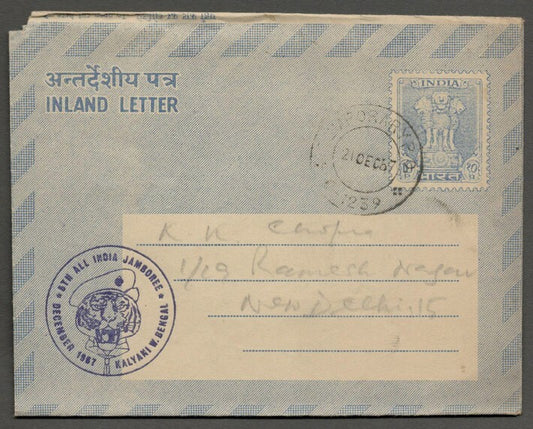 अन्तर्देशीय पत्र
INLAND LETTER
INDIA
भारत
21 DEC 67
1239
K K Chopra
1/19 Ramesh Nagar
New Delhi-15
5TH ALL INDIA JAMBOREE
DECEMBER 1967 KALYANI W. BENGAL